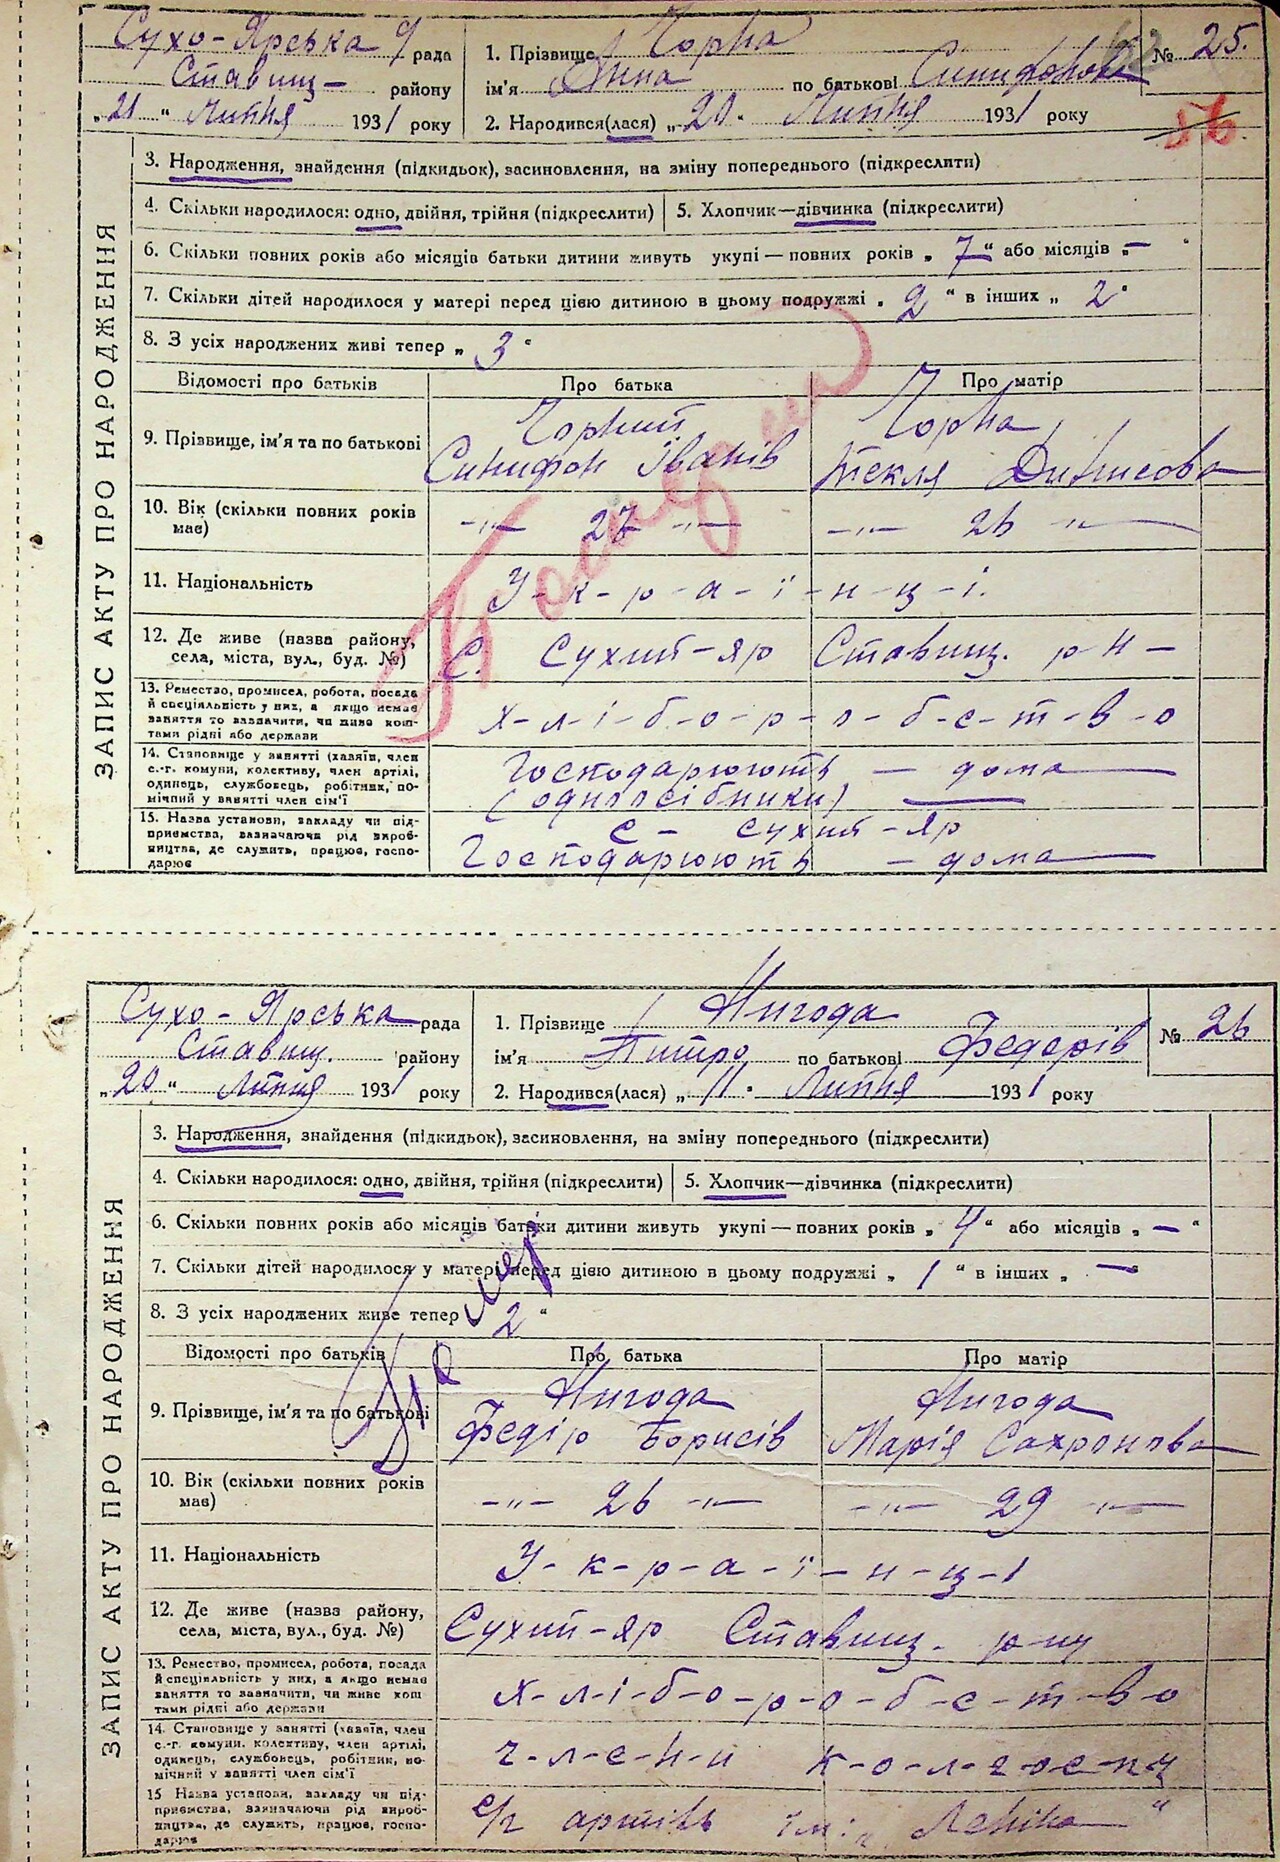 Сухо-Ярська рада
Ставищ- району
"21" Липня 1931 року
1. Прізвище Чорна
ім'я Анна по батькові Синифонова
2. Народився(лася) "20" Липня 1931 року
№ 25.
56
ЗАПИС АКТУ ПРО НАРОДЖЕННЯ
3. Народження, знайдення (підкидьок), засиновлення, на зміну попереднього (підкреслити)
4. Скільки народилося: одно, двійня, трійня (підкреслити) 5. Хлопчик—дівчинка (підкреслити)
6. Скільки повних років або місяців батьки дитини живуть укупі — повних років „ 7 " або місяців „ — "
7. Скільки дітей народилося у матері перед цією дитиною в цьому подружжі „ 2 " в інших „ 2 "
8. З усіх народжених живі тепер „ 3 "
Відомості про батьків Про батька Про матір
9. Прізвище, ім'я та по батькові Чорний Чорна
Синифон Іванів Текля Динисова
10. Вік (скільки повних років має) —"— 27 —"— —"— 26 —"—
11. Національність У-к-р-а-ї-н-ц-і.
12. Де живе (назва району, села, міста, вул., буд. №) С. Сухий-яр Ставищ. р-н-
13. Ремество, промисел, робота, посада
й спеціяльність у них, а якщо немає
заняття то зазначити, чи живе кош-
тами рідні або держави
х-л-і-б-о-р-о-б-с-т-в-о
14. Становище у занятті (хазяїн, член
с.-г. комуни, колективу, член артілі,
одинець, службовець, робітник, по-
мічний у занятті член сім'ї
Господарюють — дома
(одноосібники)
15. Назва установи, закладу чи під-
приємства, зазначаючи рід вироб-
ництва, де служить, працює, госпо-
дарює
с- сухий-яр
Господарюють — дома
Сухо-Ярська рада
Ставищ. району
„20" Липня 1931 року
1. Прізвище Нигода
ім'я Питро по батькові Федорів
2. Народився(лася) „11" Липня 1931 року
№ 26
ЗАПИС АКТУ ПРО НАРОДЖЕННЯ
3. Народження, знайдення (підкидьок), засиновлення, на зміну попереднього (підкреслити)
4. Скільки народилося: одно, двійня, трійня (підкреслити) 5. Хлопчик—дівчинка (підкреслити)
6. Скільки повних років або місяців батьки дитини живуть укупі — повних років „ 4 " або місяців „ — "
7. Скільки дітей народилося у матері перед цією дитиною в цьому подружжі „ 1 " в інших „ — "
8. З усіх народжених живе тепер 2 "
Умер
Відомості про батьків Про батька Про матір
9. Прізвище, ім'я та по батькові Нигода Нигода
Федір Борисів Марія Сахронова
10. Вік (скільки повних років має) —"— 26 —"— —"— 29 —"—
11. Національність У-к-р-а-ї-н-ц-і
12. Де живе (назва району, села, міста, вул., буд. №) Сухий-яр Ставищ. р-ну
13. Ремество, промисел, робота, посада
й спеціяльність у них, а якщо немає
заняття то зазначити, чи живе кош
тами рідні або держави
х-л-і-б-о-р-о-б-с-т-в-о
14. Становище у занятті (хазяїн, член
с.-г. комуни. колективу, член артілі,
одинець, службовець, робітник, по-
мічний у занятті член сім'ї
ч-л-е-н-и к-о-л-г-о-с-п-у
15 Назва установи, закладу чи під-
приємства, зазначаючи рід вироб-
ництва, де служить, працює, госпо-
дарює
с/г артіль ім. Леніна"